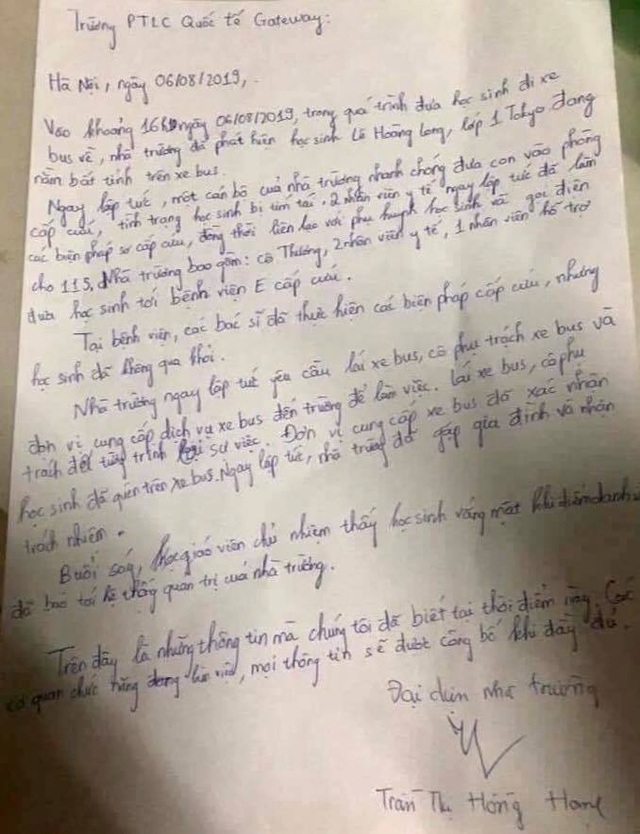 Trường PTLC Quốc tế Gateway:
Hà Nội, ngày 06/08/2019,
Vào khoảng 16h ngày 06/08/2019, trong quá trình đưa học sinh đi xe
bus về, nhà trường đã phát hiện học sinh Lê Hoàng Long, lớp 1 Tokyo đang
nằm bất tỉnh trên xe bus.
Ngay lập tức, một cán bộ của nhà trường nhanh chóng đưa con vào phòng
cấp cứu, tình trạng học sinh bị tím tái. 2 nhân viên y tế ngay lập tức đã làm
các biện pháp sơ cấp cứu, đồng thời liên lạc với phụ huynh học sinh và gọi điện
cho 115. Nhà trường bao gồm: cô Thương, 2 nhân viên y tế, 1 nhân viên hỗ trợ
đưa học sinh tới bệnh viện E cấp cứu.
Tại bệnh viện, các bác sĩ đã thực hiện các biện pháp cấp cứu, nhưng
học sinh đã không qua khỏi.
Nhà trường ngay lập tức yêu cầu lái xe bus, cô phụ trách xe bus và
đơn vị cung cấp dịch vụ xe bus đến trường để làm việc. Lái xe bus, cô phụ
trách đã tường trình lại sự việc. Đơn vị cung cấp xe bus đã xác nhận
học sinh đã quên trên xe bus. Ngay lập tức, nhà trường đã gặp gia đình và nhân
trách nhiệm.
Buổi sáng, giáo viên chủ nhiệm thấy học sinh vắng mặt khi điểm danh
đã báo tới hệ thống quản trị của nhà trường.
Trên đây là những thông tin mà chúng tôi đã biết tại thời điểm này. Các
cơ quan chức năng đang làm việc, mọi thông tin sẽ được công bố khi đầy đủ.
Đại diện nhà trường
Trần Thị Hồng Hạnh